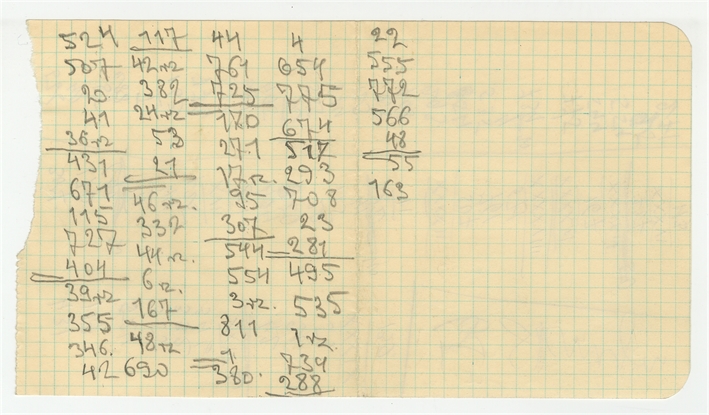 524
507
20
41
36+2
431
671
115
727
404
39+2
355
346.
42
117
42+2
382
24+2
53
21
46+2.
332
44+2.
6+2.
167
48+2
690
44
761
725
170
271
17+2.
95
307
544
554
3+2.
811
1
380.
4
654
775
674
517
293
708
23
281
495
535
1+2.
734
288
22
555
772
566
48
55
163